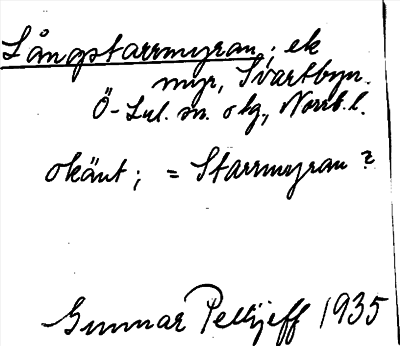 Långstarrmyran; ek
myr, Svartbyn.
Ö-Lul. sn. o hg, Norrb. l.
okänt; = Starrmyran?
Gunnar Pellijeff 1935